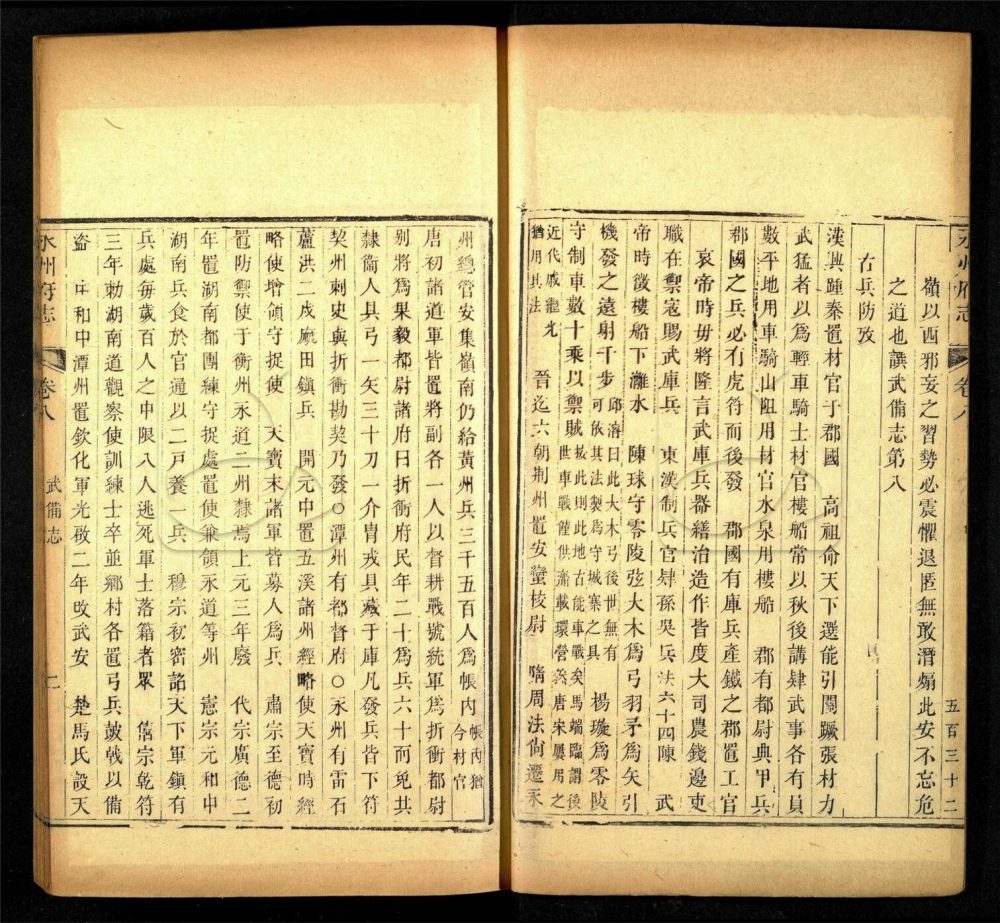 永州府志 卷八 五百三十二
嶺以西邪妄之習勢必震懼退匿無敢潛煽此安不忘危
之道也譔武備志第八
右兵防攷
漢興踵秦置材官于郡國 高祖命天下選能引關蹶張材力
武猛者以為輕車騎士材官樓船常以秋後講肄武事各有員
數平地用車騎山阻用材官水泉用樓船 郡有都尉典甲兵
郡國之兵必有虎符而後發 郡國有庫兵產鐵之郡置工官
哀帝時毋將隆言武庫兵器繕治造作皆度大司農錢邊吏
職在禦寇賜武庫兵 東漢制兵官肄孫吳兵法六十四陳 武
帝時徵樓船下灕水 陳球守零陵弦大木爲弓羽矛爲矢引
機發之遠射千步 邱濬曰此大木弓後世無有可依其法製爲守城寨之具 楊璇爲零陵
守制車數十乘以禦賊 按此則此地古能車戰矣馬端臨謂後世車戰僅供齎載環營然唐宋屢用之
近代戚繼光猶用其法 晉迄六朝荆州置安蠻校尉 隋周法尚遷永
州總管安集嶺南仍給黃州兵三千五百人爲帳內 帳內猶今材官
唐初諸道軍皆置將副各一人以督耕戰號統軍爲折衝都尉
別將爲果毅都尉諸府曰折衝府民年二十爲兵六十而免共
隸衞人具弓一矢三十刀一介冑戎具藏于庫凡發兵皆下符
契州刺史與折衝勘契乃發〇潭州有都督府〇永州有雷石
蘆洪二戍麻田鎮兵 開元中置五溪諸州經略使天寶時經
略使增領守捉使 天寶末諸軍皆募人爲兵 肅宗至德初
置防禦使于衡州永道二州隸焉上元三年廢 代宗廣德二
年置湖南都團練守捉處置使兼領永道等州 憲宗元和中
湖南兵食於官通以二戸養一兵 穆宗初密詔天下軍鎮有
兵處每歲百人之中限八人逃死軍士落籍者眾 僖宗乾符
三年勅湖南道觀察使訓練士卒並鄉村各置弓兵鼓戟以備
盜 中和中潭州置欽化軍光啟二年改武安 楚馬氏設天
永州府志 卷八 武備志